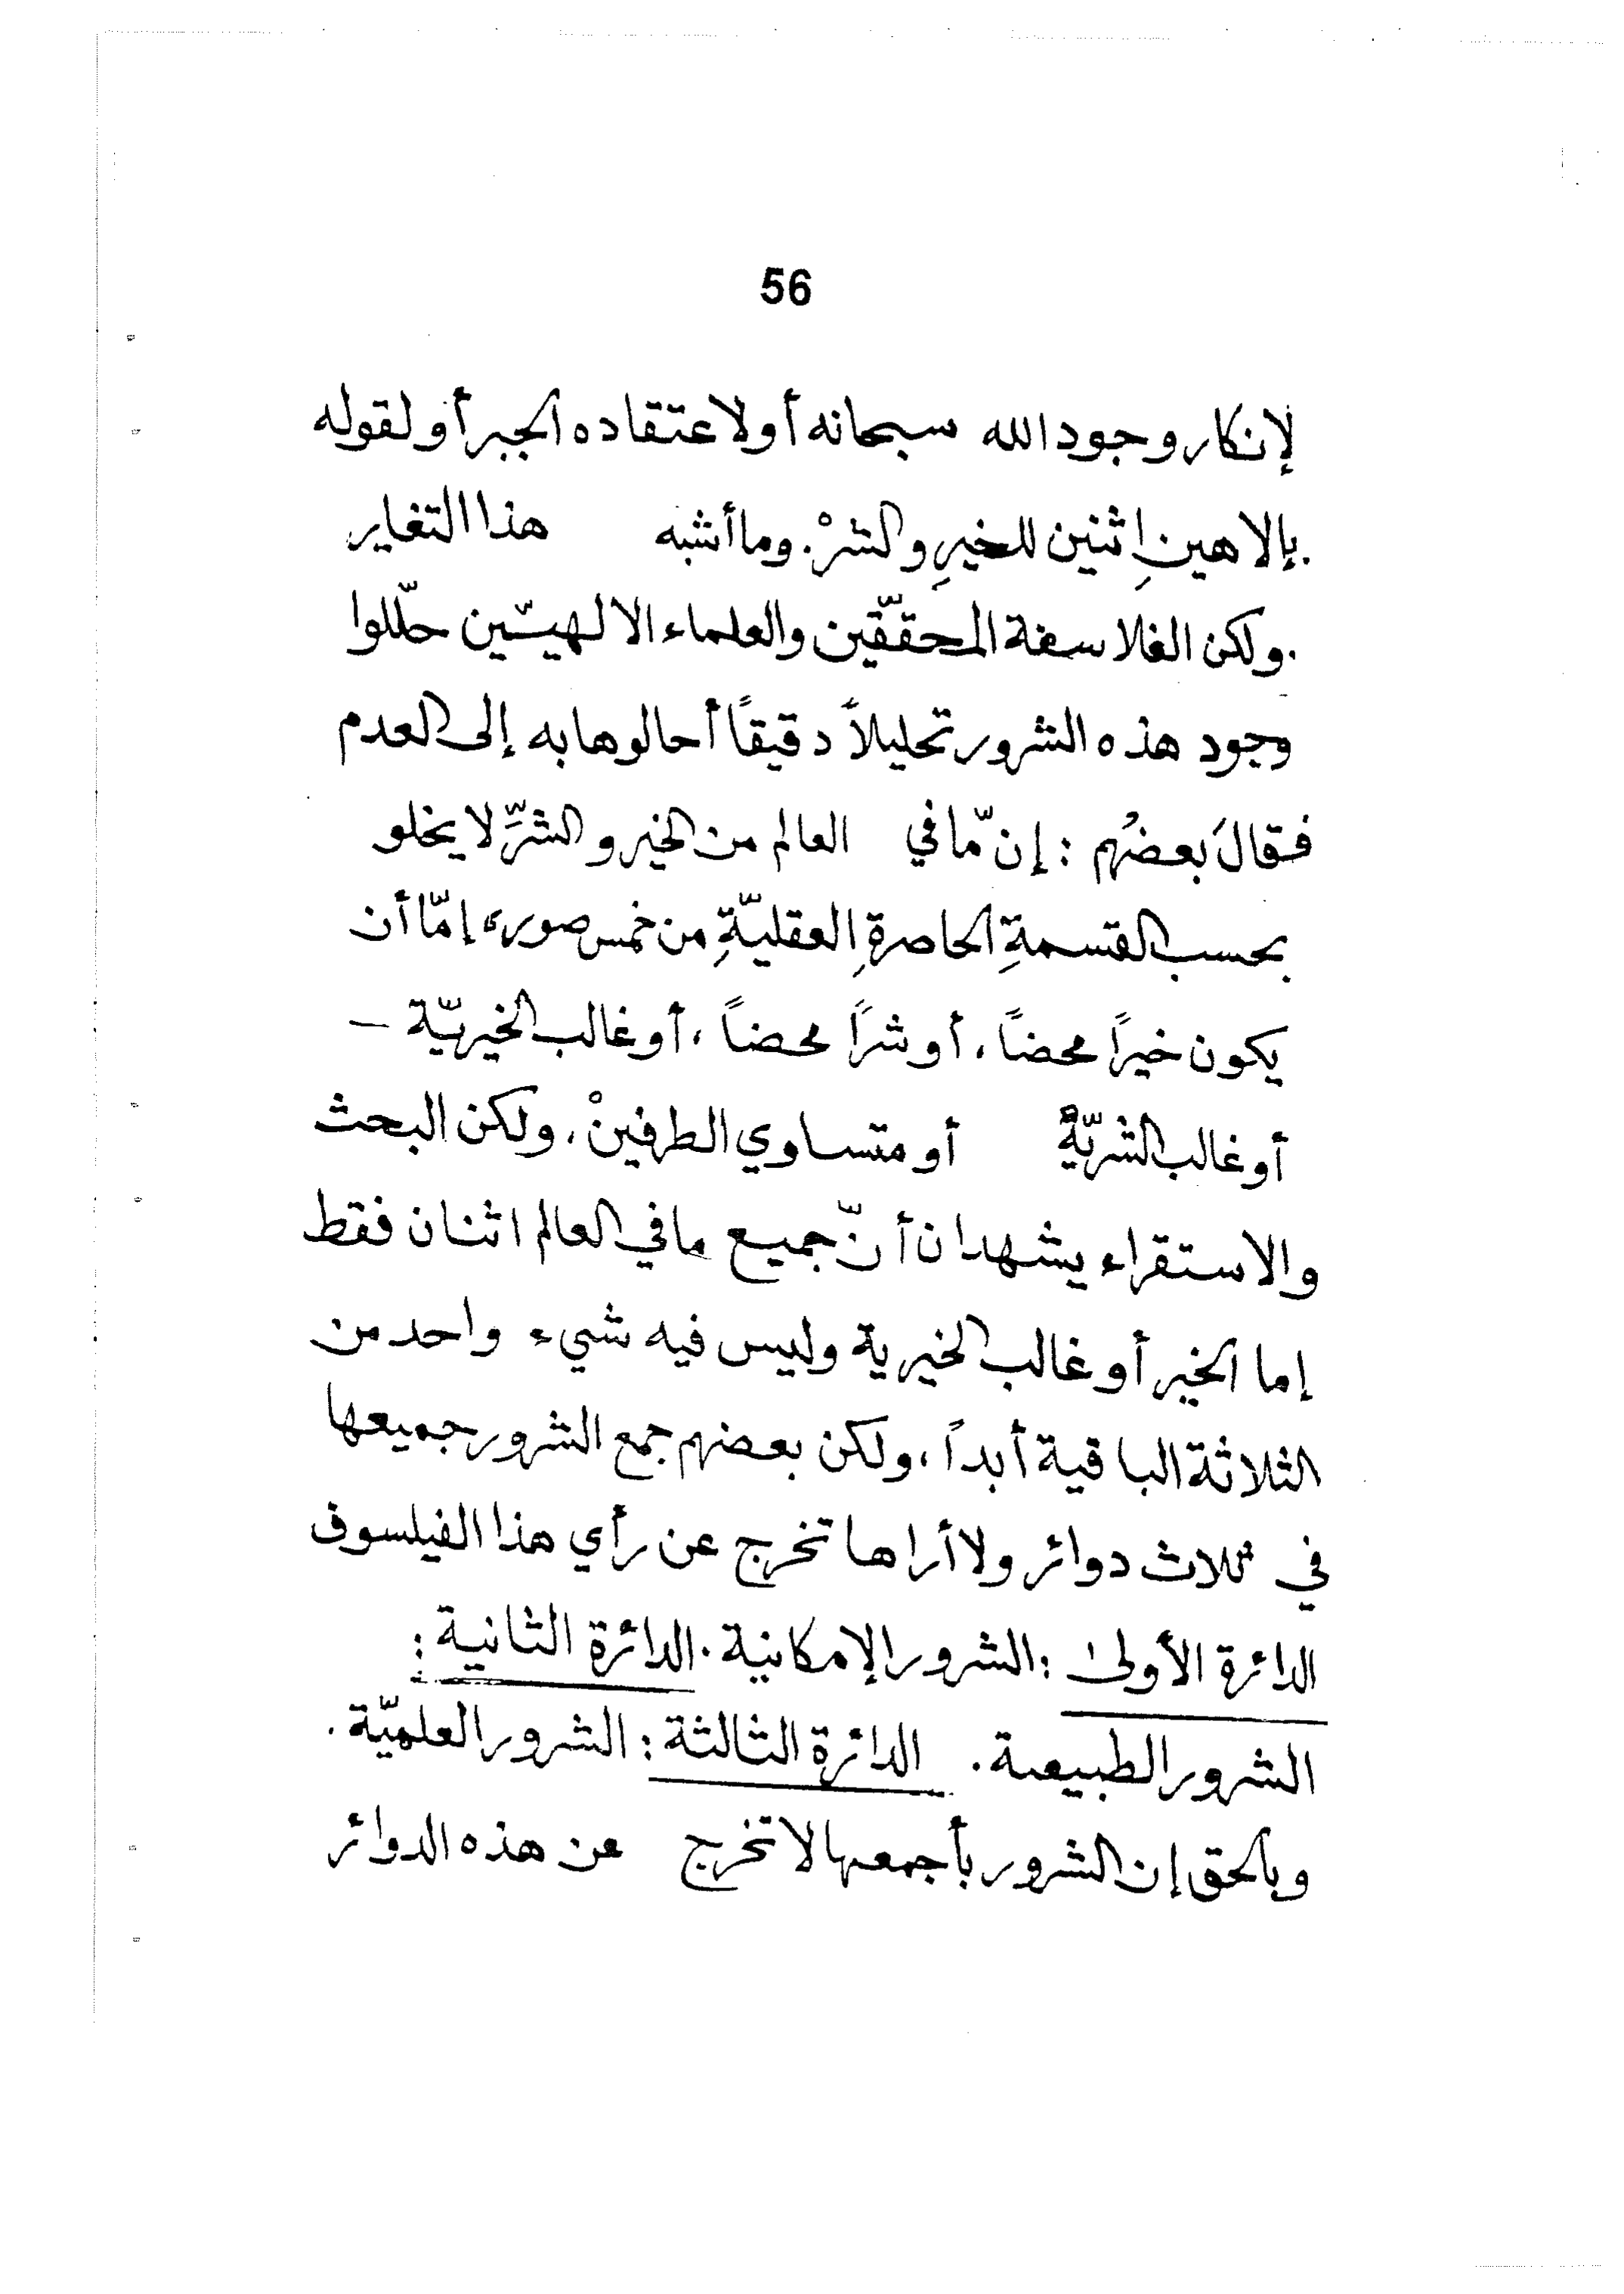 56
لإنكار وجود الله سبحانه أو لاعتقاده الجبر أو لقوله
بإلاهينِ اثنين للخيرِ والشرْ. وما أشبه هذا التغاير
.ولكن الفلاسفة المحقّقين والعلماء الالهيّين حلّلوا
وجود هذه الشرور تحليلاً دقيقاً أحالوها به إلى العدم
فقالَ بعضُهم : إنّ ما في العالم من الخير والشرِّ لا يخلو
بحسب القسمةِ الحاصرةِ العقليّةِ من خمس صور، إمّا أن
يكون خيراً محضاً، أو شراً محضاً، أو غالب الخيريّة –
أو غالب الشريّة أو متساوي الطرفينْ، ولكن البحث
والاستقراء يشهدان أنّ جميع ما في العالم اثنان فقط
إما الخير أو غالب الخيرية وليس فيه شيء واحد من
الثلاثة الباقية أبداً، ولكن بعضهم جمع الشرور جميعها
في ثلاث دوائر ولا أراها تخرج عن رأي هذا الفيلسوف
الدائرة الأولى : الشرور الإمكانية. الدائرة الثانية :
الشرور الطبيعية. الدائرة الثالثة : الشرور العلميّة.
وبالحق إن الشرور بأجمعها لا تخرج عن هذه الدوائر